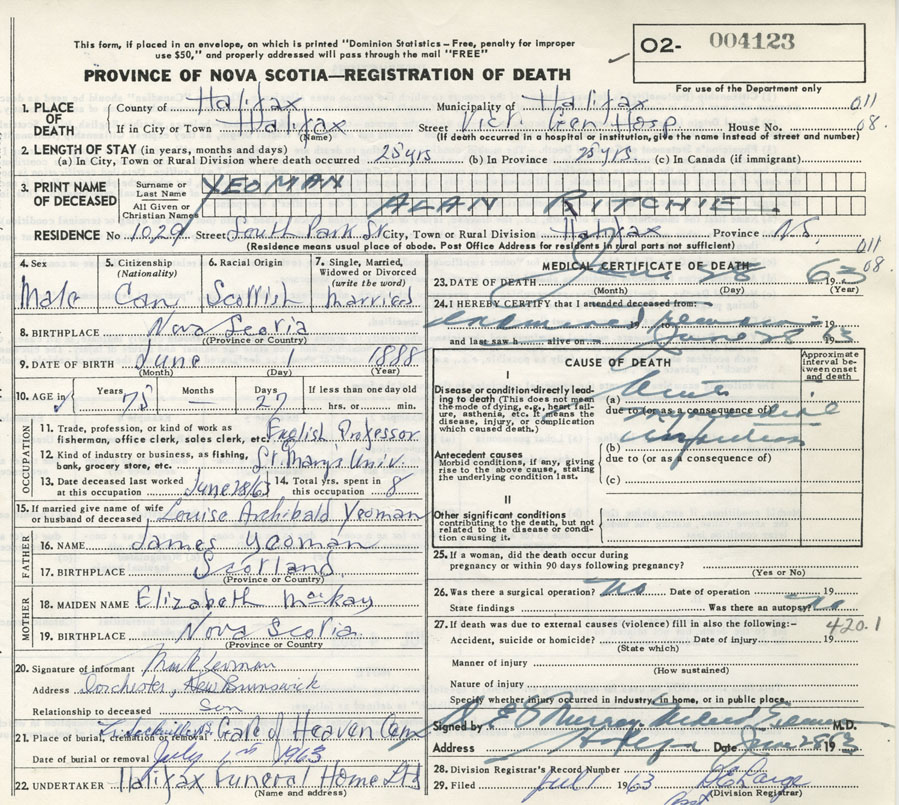 This form, if placed in an envelope, on which is printed "Dominion Statistics - Free, penalty for improper
use $50," and properly addressed will pass through the mail "FREE"
O2- 004123
PROVINCE OF NOVA SCOTIA—REGISTRATION OF DEATH
For use of the Department only
1. PLACE OF DEATH
County of Halifax Municipality of Halifax 011
If in City or Town Halifax Street Vict. Gen Hosp House No. 08.
(Name) (If death occurred in a hospital or institution, give the name instead of street and number)
2. LENGTH OF STAY (in years, months and days)
(a) In City, Town or Rural Division where death occurred 28 yrs (b) In Province 28 yrs. (c) In Canada (if immigrant)
3. PRINT NAME OF DECEASED
Surname or Last Name YEOMAN
All Given or Christian Names ALAN RITCHIE
RESIDENCE No. 1029 Street South Park St City, Town or Rural Division Halifax Province N.S.
(Residence means usual place of abode. Post Office Address for residents in rural parts not sufficient) 011
08.
4. Sex Male
5. Citizenship (Nationality) Can
6. Racial Origin Scottish
7. Single, Married, Widowed or Divorced (write the word) Married
8. BIRTHPLACE Nova Scotia
(Province or Country)
9. DATE OF BIRTH June 1 1888
(Month) (Day) (Year)
10. AGE in Years 75 Months — Days 27 If less than one day old
hrs. or min.
OCCUPATION
11. Trade, profession, or kind of work as
fisherman, office clerk, sales clerk, etc. English Professor
12. Kind of industry or business, as fishing,
bank, grocery store, etc. St. Marys Univ.
13. Date deceased last worked
at this occupation June 28/63
14. Total yrs. spent in
this occupation 8
15. If married give name of wife
or husband of deceased Louise Archibald Yeoman
FATHER
16. NAME James Yeoman
17. BIRTHPLACE Scotland
(Province or Country)
MOTHER
18. MAIDEN NAME Elizabeth MacKay
19. BIRTHPLACE Nova Scotia
(Province or Country)
20. Signature of informant Mark Yeoman
Address Dorchester, New Brunswick
Relationship to deceased Son
21. Place of burial, cremation or removal Gate of Heaven Cem
Date of burial or removal July 1st 1963
22. UNDERTAKER Halifax Funeral Home Ltd
(Name and address)
MEDICAL CERTIFICATE OF DEATH
23. DATE OF DEATH June 28 1963
(Month) (Day) (Year)
24. I HEREBY CERTIFY that I attended deceased from:
examined remains 19 to 19
and last saw h alive on June 28 1963
CAUSE OF DEATH
Approximate interval between onset and death
I
Disease or condition directly leading
to death (This does not mean
the mode of dying, e.g., heart failure,
asthenia, etc. It means the
disease, injury, or complication
which caused death.)
(a) Acute
due to (or as a consequence of)
Antecedent causes
Morbid conditions, if any, giving
rise to the above cause, stating
the underlying condition last.
(b) infarction
due to (or as a consequence of)
(c)
II
Other significant conditions
contributing to the death, but not
related to the disease or condition
causing it.
25. If a woman, did the death occur during
pregnancy or within 90 days following pregnancy?
(Yes or No)
26. Was there a surgical operation? No Date of operation 19
State findings Was there an autopsy? No
27. If death was due to external causes (violence) fill in also the following:- 420.1
Accident, suicide or homicide? Date of injury 19
(State which)
Manner of injury
(How sustained)
Nature of injury
Specify whether injury occurred in industry, in home, or in public place
Signed by Murray Medical Examiner M.D.
Address Halifax Date June 28 63
28. Division Registrar's Record Number
29. Filed July 1 1963
(Division Registrar)